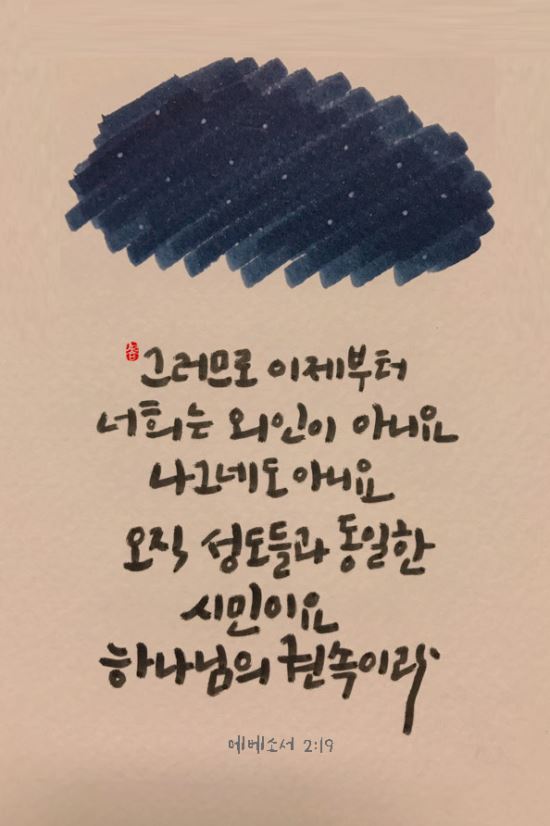 그러므로 이제부터
너희는 외인이 아니요
나그네도 아니요
오직 성도들과 동일한
시민이요
하나님의 권속이라
에베소서 2:19